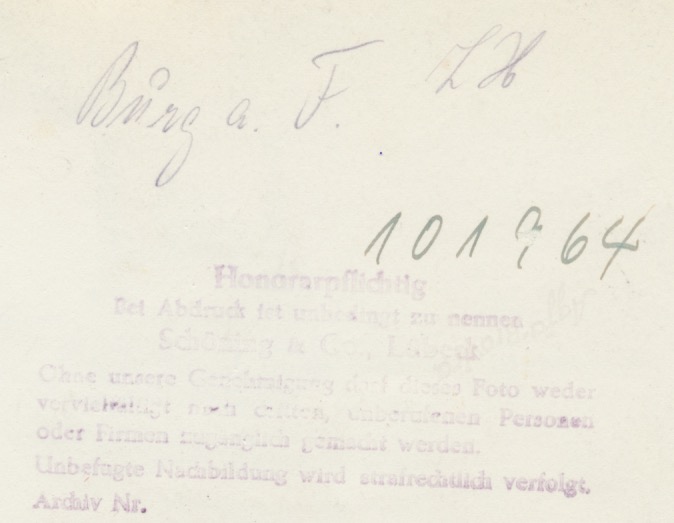 Burg a. F. LH
101 64
Honorarpflichtig
Bei Abdruck ist unbedingt zu nennen
Schöning & Co., Lübeck
Ohne unsere Genehmigung darf dieses Foto weder
vervielfältigt noch dritten, unberufenen Personen
oder Firmen zugänglich gemacht werden.
Unbefugte Nachbildung wird strafrechtlich verfolgt.
Archiv Nr.